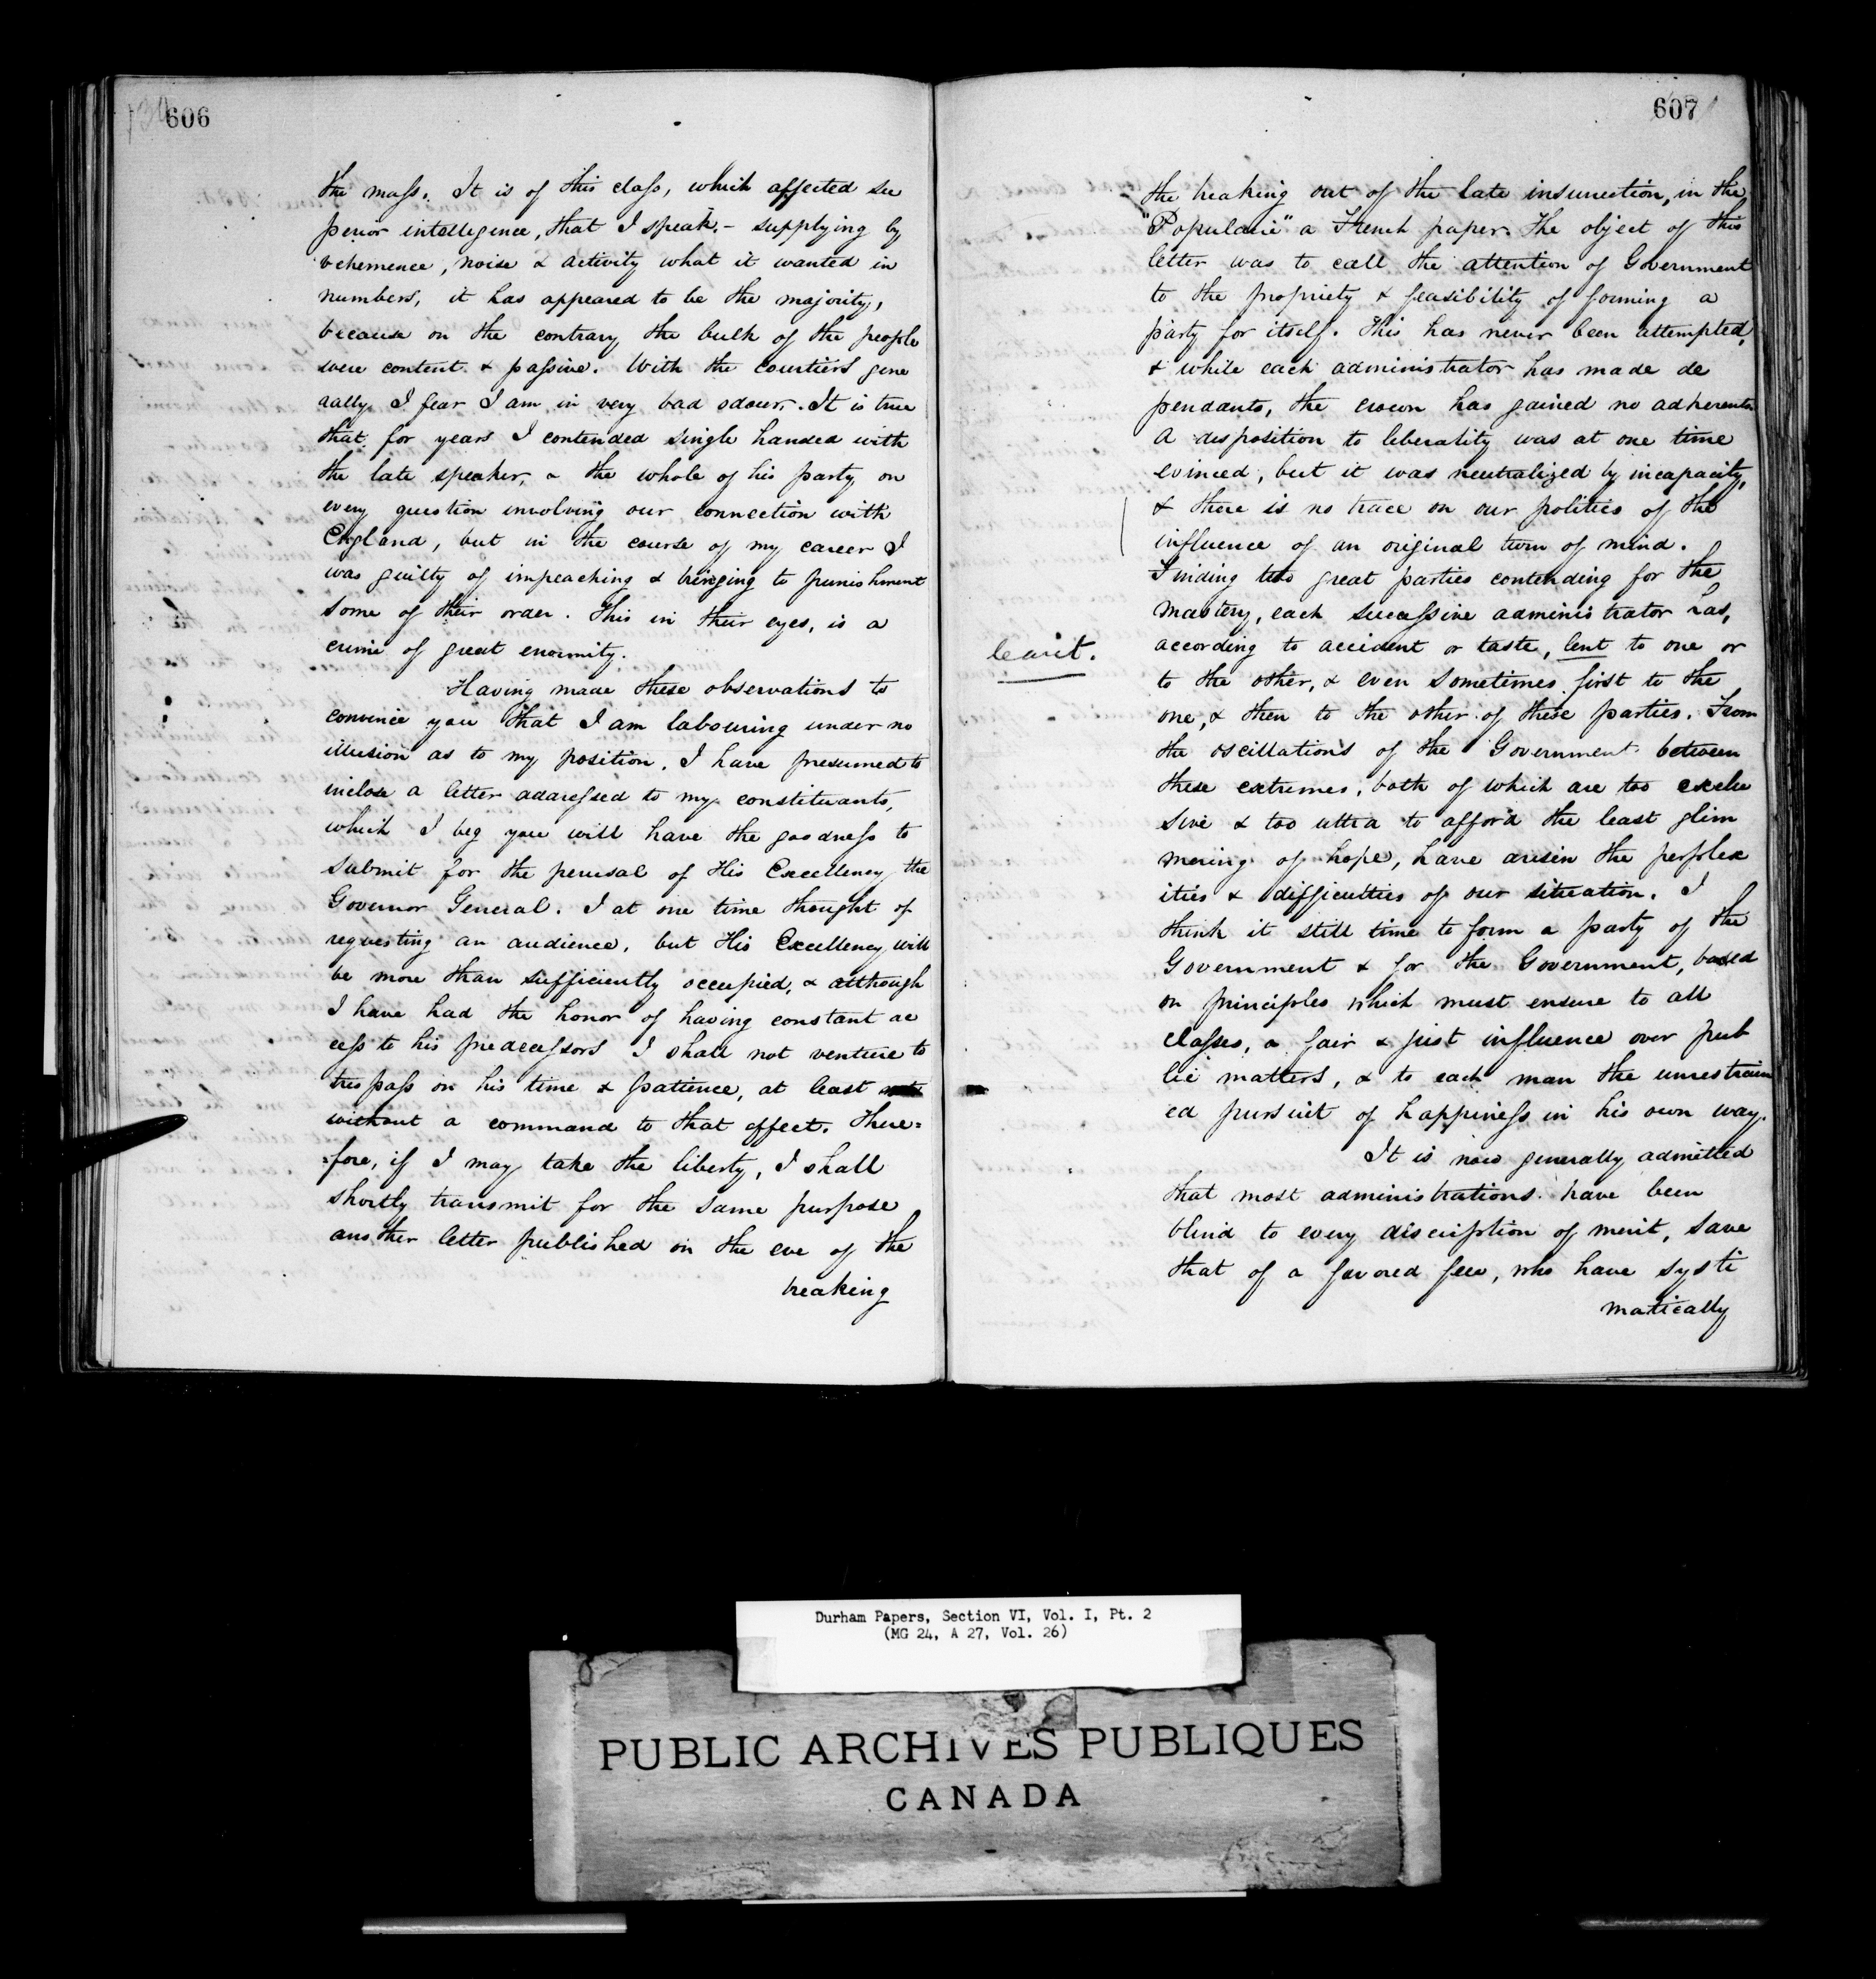 606
the mass. It is of this class, which affected su
perior intellegence, that I speak. - supplying by
vehemence, noise & activity what it wanted in
numbers, it has appeared to be the majority,
because on the contrary the bulk of the people
were content & passive. With the courtiers gene
rally I fear I am in very bad odour. It is true
that for years I contended single handed with
the late speaker, & the whole of his party on
every question involving our connection with
England, but in the course of my career I
was guilty of impeaching & bringing to punishment
some of their order. This in their eyes, is a
crime of great enormity.
Having made these observations to
convince you that I am labouring under no
illusion as to my position. I have presumed to
inclose a letter addressed to my constituants,
which I beg you will have the goodness to
submit for the perusal of His Excellency the
Governor General. I at one time thought of
requesting an audience, but His Excellency will
be more than sufficiently occupied, & although
I have had the honor of having constant ac
cess to his predecessors I shall not venture to
trespass on his time & patience, at least
without a command to that effect. There=
=fore, if I may take the liberty, I shall
shortly transmit for the same purpose
another letter published on the eve of the
breaking
607
the breaking out of the late insurrection, in the
"Populaire" a French paper. The object of this
letter was to call the attention of Government
to the propriety & feasibility of forming a
party for itself. This has never been attempted,
& while each administrator has made de
pendants, the crown has gained no adherents
A disposition to liberality was at one time
evinced, but it was neutralized by incapacity,
& there is no trace on our politics of the
influence of an original turn of mind.
Finding two great parties contending for the
mastery, each successive administrator has,
according to accident or taste, lent to one or
leant.
to the other, & even sometimes first to the
one, & then to the other of these parties. From
the oscillations of the Government between
these extremes, both of which are too exclu
sive & too ultra to afford the least glim
mering of hope, have arisen the perplex
ities & difficulties of our situation. I
think it still time to form a party of the
Government & for the Government, based
on principles which must ensure to all
classes, a fair & just influence over pub
lic matters, & to each man the unrestrain
ed pursuit of happiness in his own way.
It is now generally admitted
that most administrations have been
blind to every discription of merit, save
that of a favored few, who have syste
matically
Durham Papers, Section VI, Vol. I, Pt. 2
(MG 24, A 27, Vol. 26)
PUBLIC ARCHIVES PUBLIQUES
CANADA